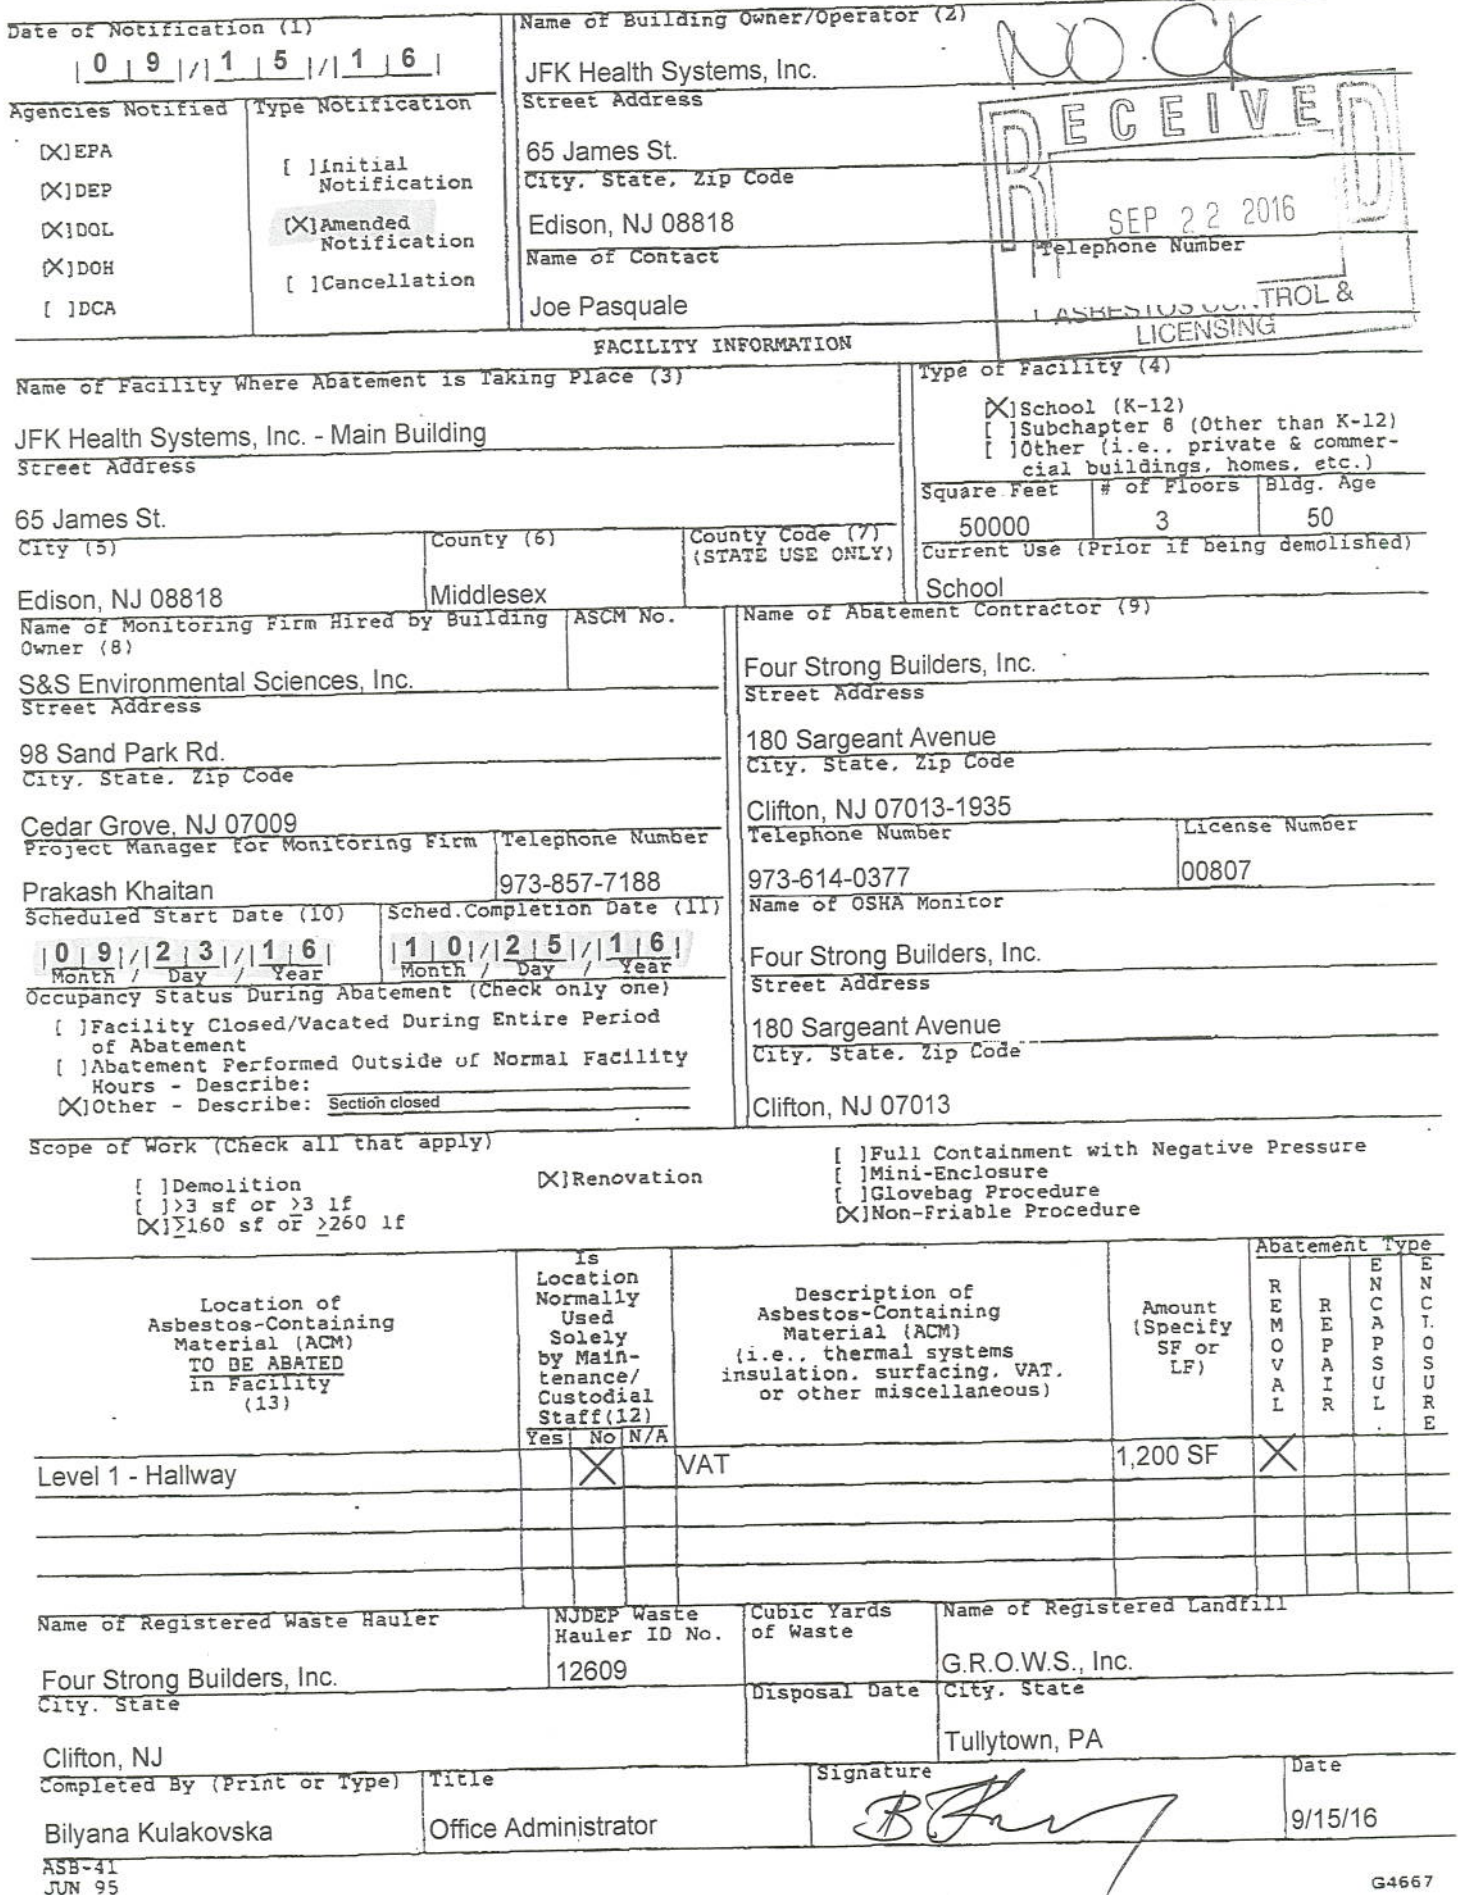 Date of Notification (1)
| 0 | 9 |/| 1 | 5 |/| 1 | 6 |
Agencies Notified
[X]EPA
[X]DEP
[X]DOL
[X]DOH
[ ]DCA
Type Notification
[ ]Initial
Notification
[X]Amended
Notification
[ ]Cancellation
Name of Building Owner/Operator (2)
JFK Health Systems, Inc.
Street Address
65 James St.
City, State, Zip Code
Edison, NJ 08818
Name of Contact
Joe Pasquale
Telephone Number
NO.CK
RECEIVED
SEP 22 2016
ASBESTOS CONTROL &
LICENSING
FACILITY INFORMATION
Name of Facility Where Abatement is Taking Place (3)
JFK Health Systems, Inc. - Main Building
Street Address
65 James St.
City (5)
Edison, NJ 08818
County (6)
Middlesex
County Code (7)
(STATE USE ONLY)
Type of Facility (4)
[X]School (K-12)
[ ]Subchapter 8 (Other than K-12)
[ ]Other (i.e., private & commer-
cial buildings, homes, etc.)
Square Feet
50000
# of Floors
3
Bldg. Age
50
Current Use (Prior if being demolished)
School
Name of Monitoring Firm Hired by Building
Owner (8)
S&S Environmental Sciences, Inc.
ASCM No.
Street Address
98 Sand Park Rd.
City, State, Zip Code
Cedar Grove, NJ 07009
Project Manager for Monitoring Firm
Prakash Khaitan
Telephone Number
973-857-7188
Scheduled Start Date (10)
| 0 | 9 |/| 2 | 3 |/| 1 | 6 |
Month / Day / Year
Sched.Completion Date (11)
| 1 | 0 |/| 2 | 5 |/| 1 | 6 |
Month / Day / Year
Occupancy Status During Abatement (Check only one)
[ ]Facility Closed/Vacated During Entire Period
of Abatement
[ ]Abatement Performed Outside of Normal Facility
Hours - Describe:
[X]Other - Describe: Section closed
Name of Abatement Contractor (9)
Four Strong Builders, Inc.
Street Address
180 Sargeant Avenue
City, State, Zip Code
Clifton, NJ 07013-1935
Telephone Number
973-614-0377
License Number
00807
Name of OSHA Monitor
Four Strong Builders, Inc.
Street Address
180 Sargeant Avenue
City, State, Zip Code
Clifton, NJ 07013
Scope of Work (Check all that apply)
[ ]Demolition
[ ]>3 sf or >3 lf
[X]>160 sf or >260 lf
[X]Renovation
[ ]Full Containment with Negative Pressure
[ ]Mini-Enclosure
[ ]Glovebag Procedure
[X]Non-Friable Procedure
Location of
Asbestos-Containing
Material (ACM)
TO BE ABATED
in Facility
(13)
Is
Location
Normally
Used
Solely
by Main-
tenance/
Custodial
Staff(12)
Yes No N/A
Description of
Asbestos-Containing
Material (ACM)
(i.e., thermal systems
insulation, surfacing, VAT,
or other miscellaneous)
Amount
(Specify
SF or
LF)
Abatement Type
REMOVAL
REPAIR
ENCAPSUL.
ENCLOSURE
Level 1 - Hallway X VAT 1,200 SF X
Name of Registered Waste Hauler
Four Strong Builders, Inc.
NJDEP Waste
Hauler ID No.
12609
Cubic Yards
of Waste
Name of Registered Landfill
G.R.O.W.S., Inc.
City, State
Clifton, NJ
Disposal Date
City, State
Tullytown, PA
Completed By (Print or Type)
Bilyana Kulakovska
Title
Office Administrator
Signature
Date
9/15/16
ASB-41
JUN 95
G4667